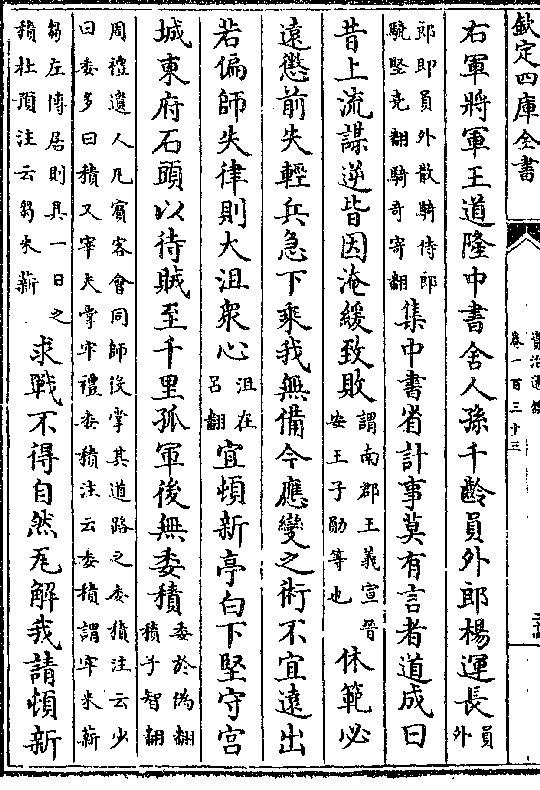 欽定四庫全書
資治通鑑
卷一百三十三
右軍將軍王道隆中書舍人孫千齡員外郎楊運長員外
郎即員外散騎侍郎
驍堅堯翻騎奇寄翻
集中書省計事莫有言者道成曰
昔上流謀逆皆因淹緩致敗
謂南郡王義宣晉
安王子勛等也
休範必
遠懲前失輕兵急下乘我無備今應變之術不宜遠出
若偏師失律則大沮衆心
沮在
呂翻
宜頓新亭白下堅守宮
城東府石頭以待賊至千里孤軍後無委積
委於偽翻
積子智翻
周禮遺人凡賓客會同師役掌其道路之委積注云少
曰委多曰積又宰夫掌牢禮委積注云委積謂牢米薪
芻左傳居則具一日之
積杜預注云芻米薪
求戰不得自然瓦解我請頓新